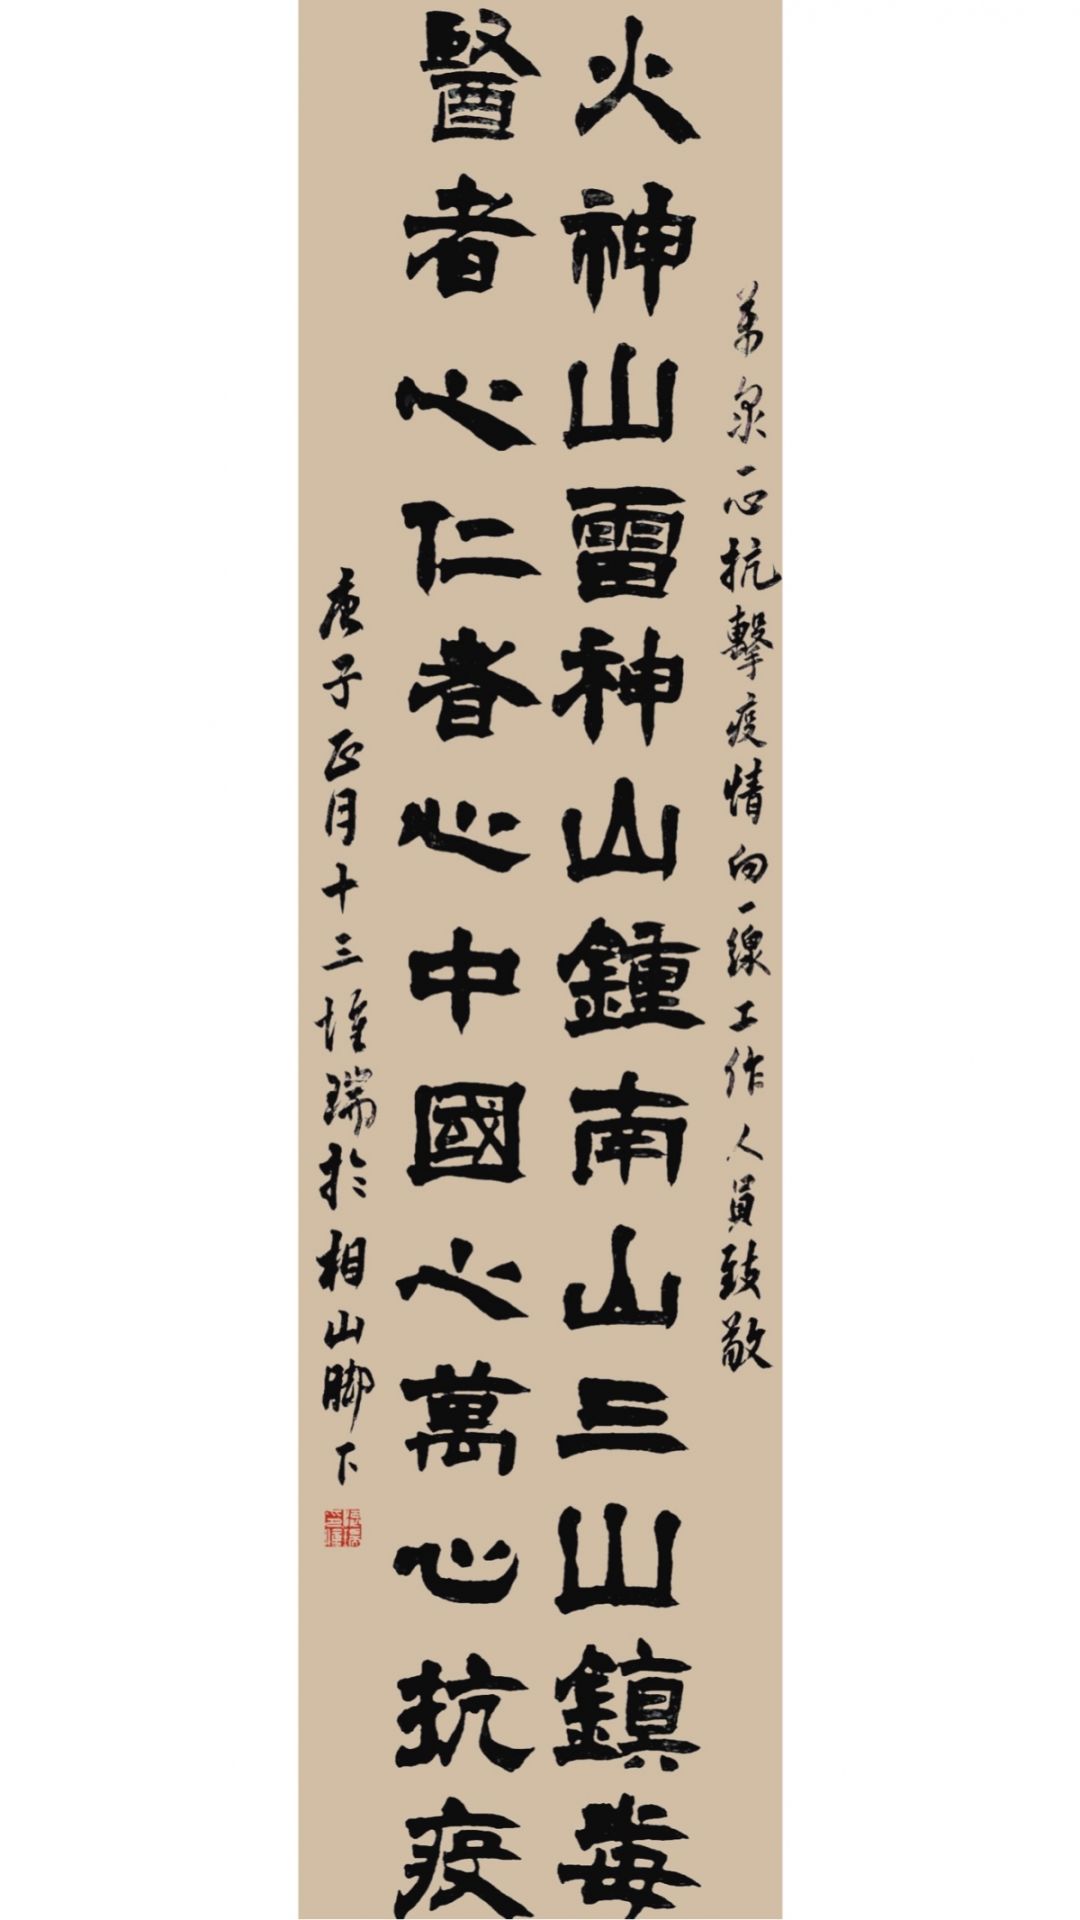 萬衆一心抗擊疫情向一線工作人員致敬
火神山雷神山鍾南山三山鎮毒
醫者心仁者心中國心萬心抗疫
庚子正月十三瑞於相山脚下